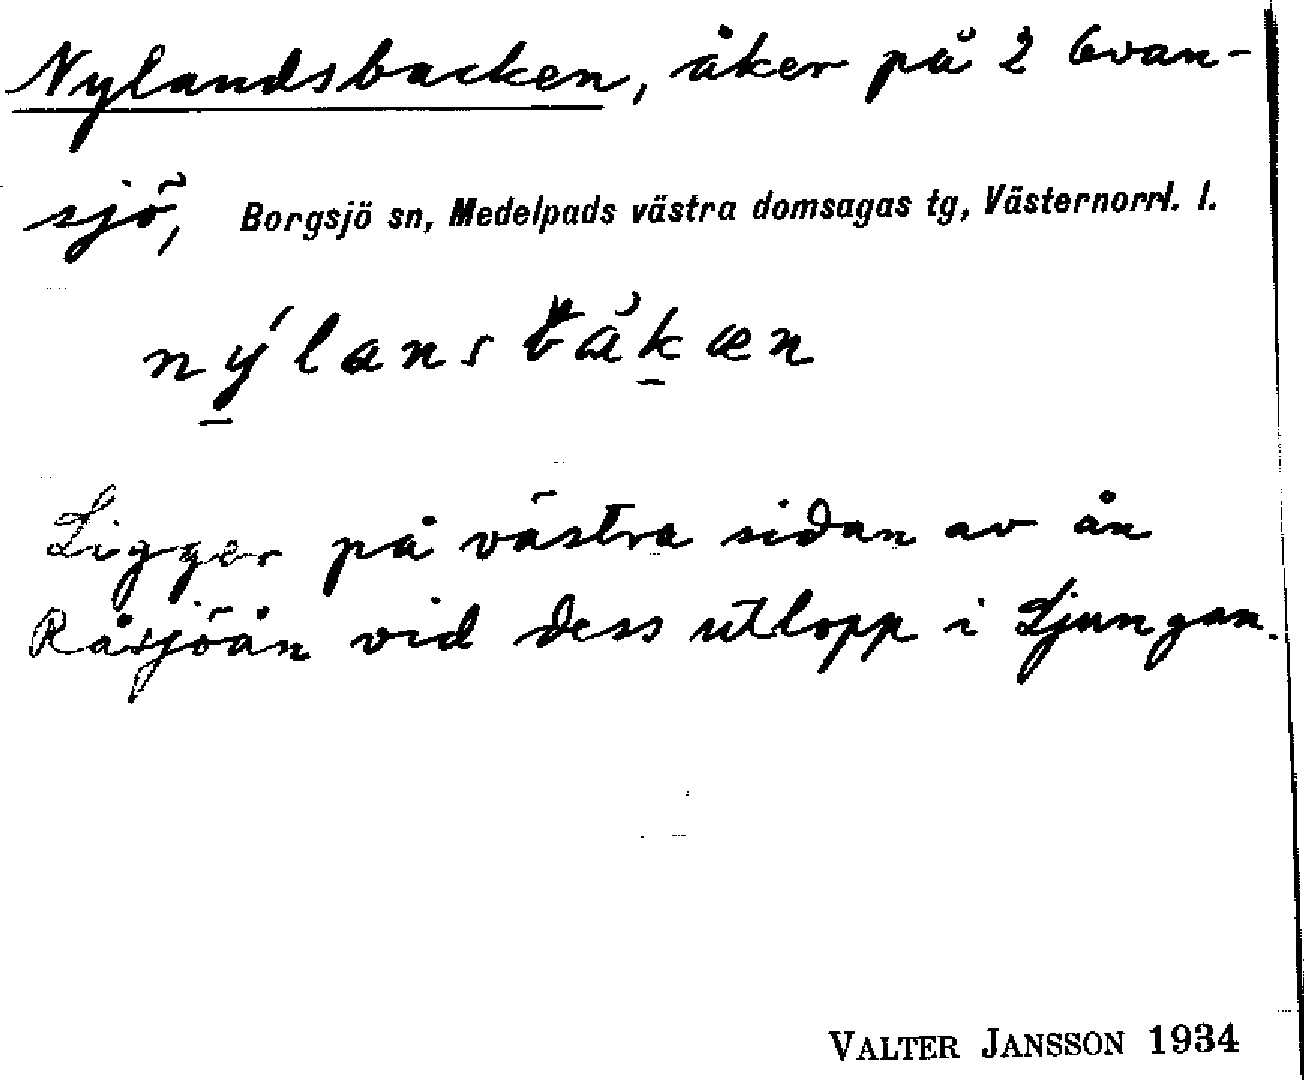 Nylandsbacken, åker på 2 Evan-
sjö, Borgsjö sn, Medelpads västra domsagas tg, Västernorrl. l.
nýlansbàkæn
Ligger på västra sidan av ån
Råsjöån vid dess utlopp i Ljungan.
VALTER JANSSON 1934